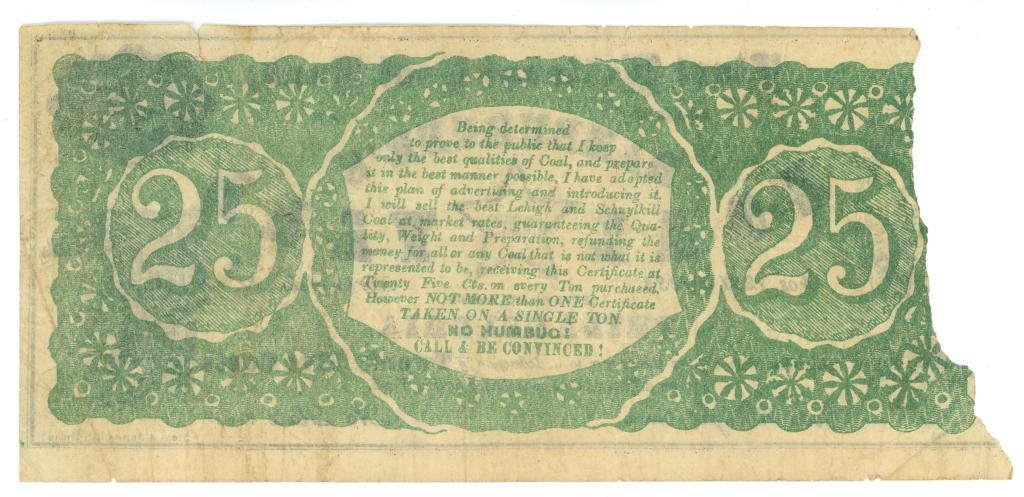 25
Being determined
to prove to the public that I keep
only the best qualities of Coal, and prepare
it in the best manner possible, I have adopted
this plan of advertising and introducing it.
I will sell the best Lehigh and Schuylkill
Coal at market rates, guaranteeing the Qua-
lity, Weight and Preparation, refunding the
money for all or any Coal that is not what it is
represented to be, receiving this Certificate at
Twenty Five Cts. on every Ton purchased.
However NOT MORE than ONE Certificate
TAKEN ON A SINGLE TON.
NO HUMBUG!
CALL & BE CONVINCED!
25